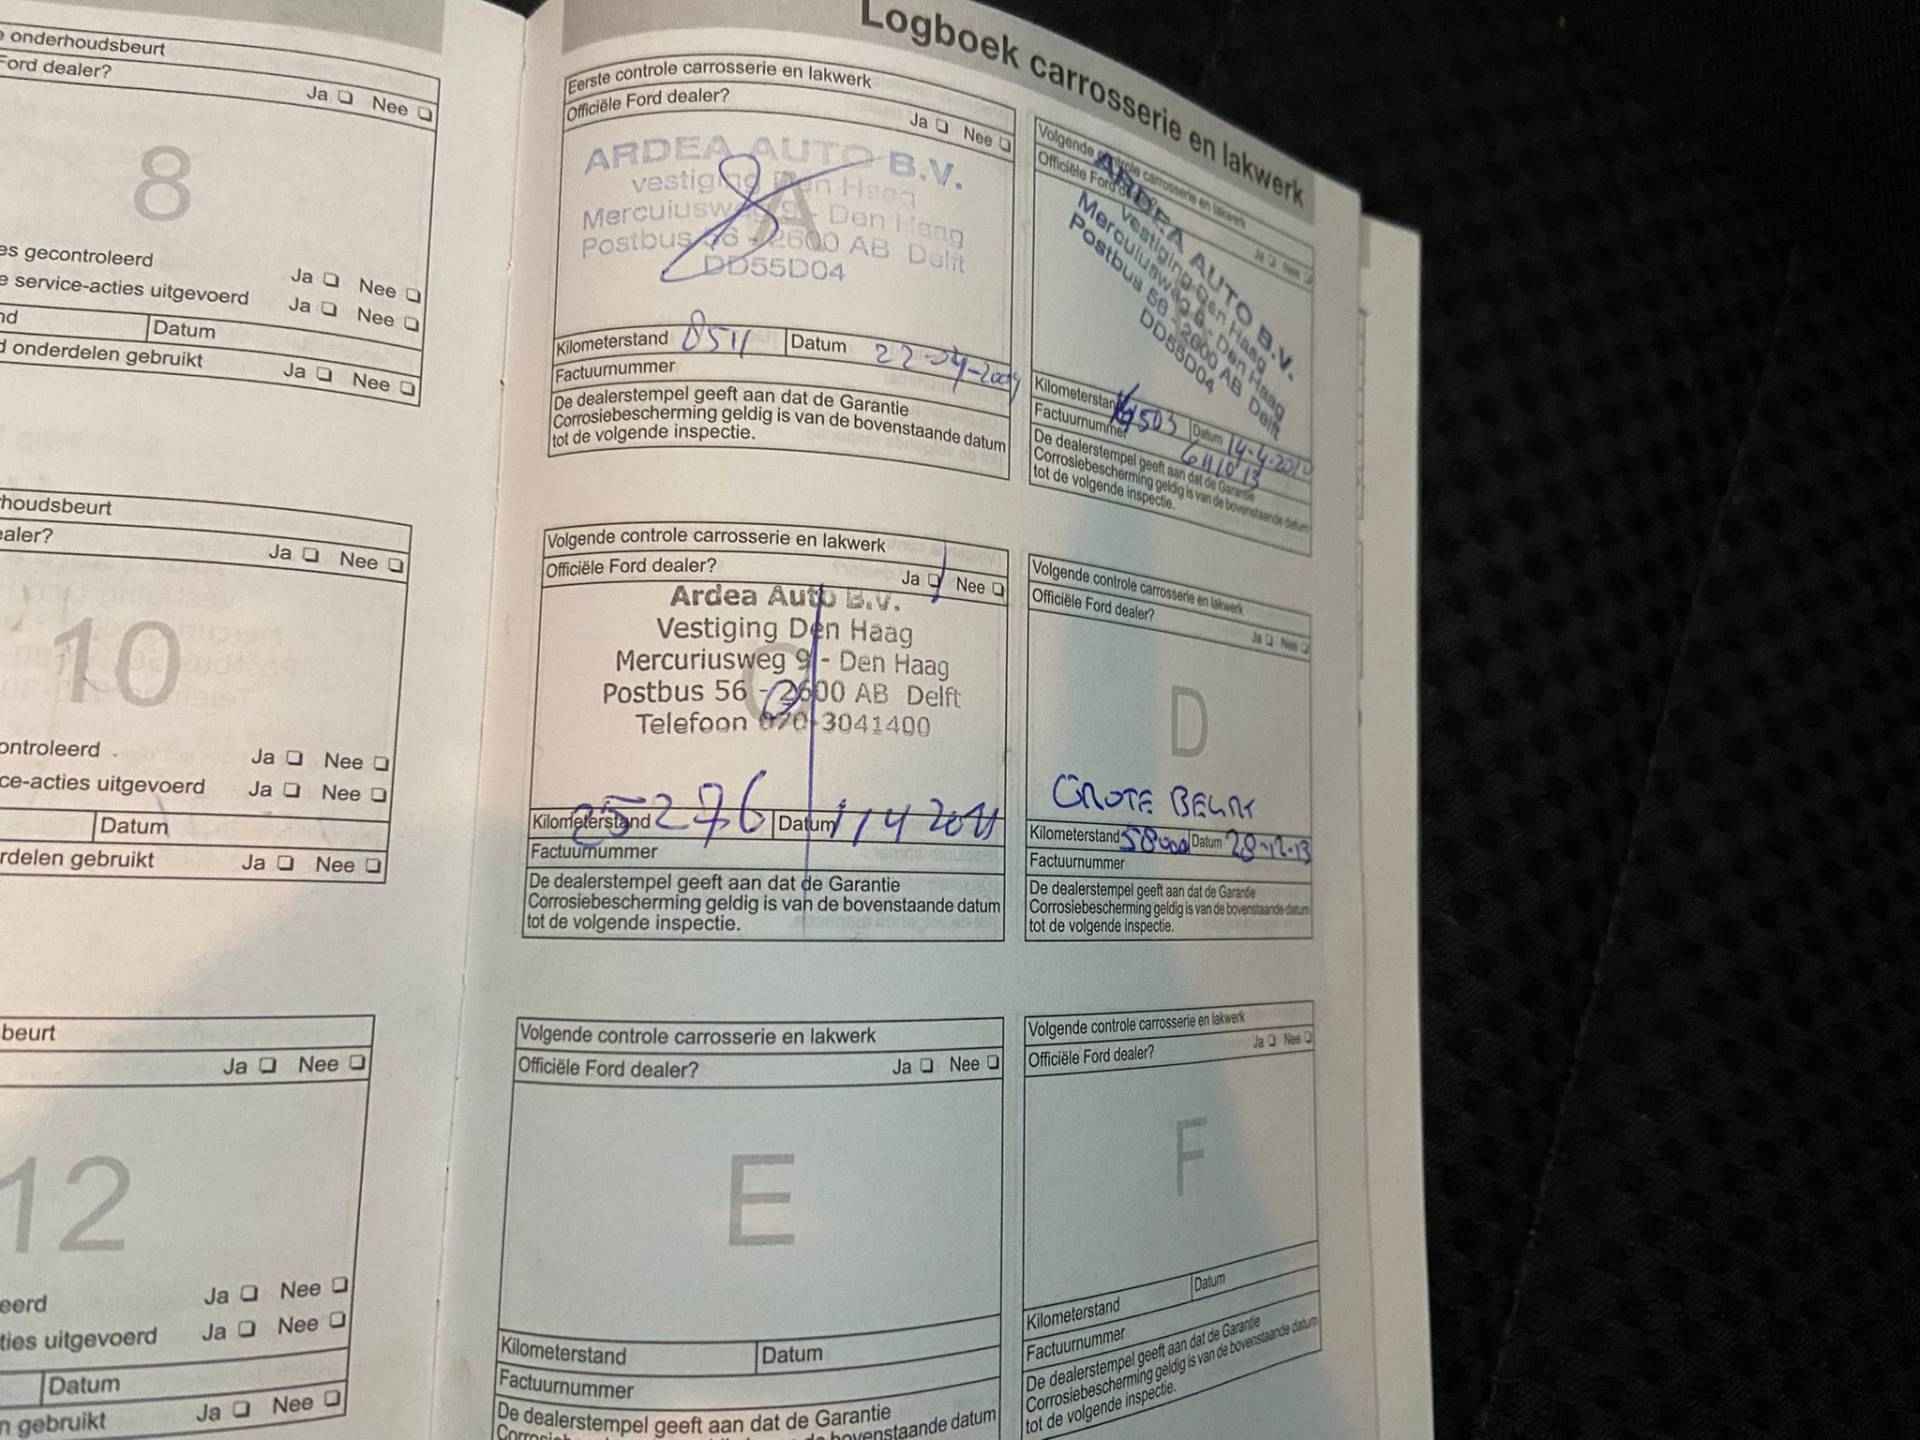 onderhoudsbeurt
Ford dealer?
Ja Nee
8
es gecontroleerd
Ja Nee
e service-acties uitgevoerd
Ja Nee
nd Datum
d onderdelen gebruikt
Ja Nee
rhoudsbeurt
ealer?
Ja Nee
10
ontroleerd
Ja Nee
ce-acties uitgevoerd
Ja Nee
Datum
rdelen gebruikt
Ja Nee
beurt
Ja Nee
12
eerd
Ja Nee
ties uitgevoerd
Ja Nee
Datum
n gebruikt
Ja Nee
Logboek carrosserie en lakwerk
Eerste controle carrosserie en lakwerk
Officiële Ford dealer?
Ja Nee
A
ARDEA AUTO B.V.
vestiging Den Haag
Mercuiusweg 9 - Den Haag
Postbus 56 - 2600 AB Delft
DD55D04
Kilometerstand 8511 Datum 22-04-2009
Factuurnummer
De dealerstempel geeft aan dat de Garantie
Corrosiebescherming geldig is van de bovenstaande datum
tot de volgende inspectie.
Volgende controle carrosserie en lakwerk
Officiële Ford
Ja Nee
ARDEA AUTO B.V.
vestiging Den Haag
Mercuiusweg 9 - Den Haag
Postbus 56 - 2600 AB Delft
DD55D04
Kilometerstand Datum 14-4-2010
Factuurnummer
De dealerstempel geeft aan dat de Garantie
Corrosiebescherming geldig is van de bovenstaande datum
tot de volgende inspectie.
Volgende controle carrosserie en lakwerk
Officiële Ford dealer?
Ja Nee
Ardea Auto B.V.
Vestiging Den Haag
Mercuriusweg 9 - Den Haag
Postbus 56 - 2600 AB Delft
Telefoon 070-3041400
Kilometerstand 25276 Datum 11 4 2011
Factuurnummer
De dealerstempel geeft aan dat de Garantie
Corrosiebescherming geldig is van de bovenstaande datum
tot de volgende inspectie.
Volgende controle carrosserie en lakwerk
Officiële Ford dealer?
Ja Nee
D
GROTE BEURT
Kilometerstand 58000 Datum 28-12-13
Factuurnummer
De dealerstempel geeft aan dat de Garantie
Corrosiebescherming geldig is van de bovenstaande datum
tot de volgende inspectie.
Volgende controle carrosserie en lakwerk
Officiële Ford dealer?
Ja Nee
E
Kilometerstand Datum
Factuurnummer
De dealerstempel geeft aan dat de Garantie
bovenstaande datum
Volgende controle carrosserie en lakwerk
Officiële Ford dealer?
Ja Nee
F
Kilometerstand Datum
Factuurnummer
De dealerstempel geeft aan dat de Garantie
Corrosiebescherming geldig is van de bovenstaande datum
tot de volgende inspectie.